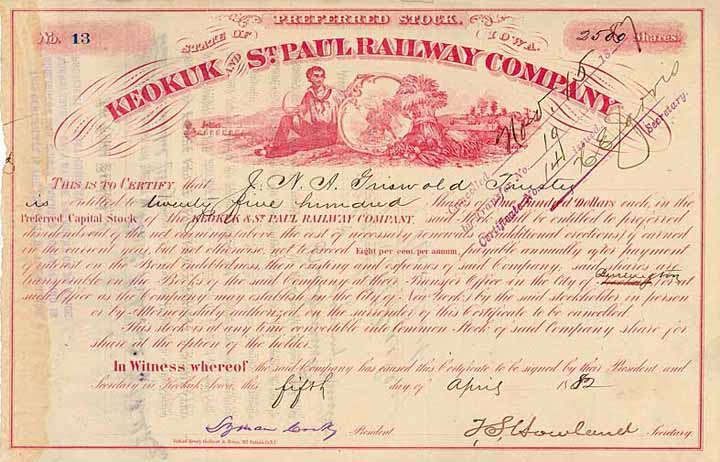 PREFERRED STOCK.
No. 13
STATE OF IOWA.
2500 Shares
KEOKUK AND ST. PAUL RAILWAY COMPANY
Nov 15 1887
Cancelled
19
Certificate No. 14
Secretary.
THIS IS TO CERTIFY that J. N. A. Griswold Trustee
is entitled to twenty five hundred Shares of One Hundred Dollars each, in the
Preferred Capital Stock of the KEOKUK & ST. PAUL RAILWAY COMPANY, said shares to be entitled to preferred
dividends out of the net earnings above the cost of necessary renewals (additional erections) if earned
in the current year, but not otherwise, not to exceed Eight per cent. per annum, payable annually after payment
of interest on the Bond indebtedness, then existing and expenses of said Company, said shares are
transferable on the Books of the said Company at their Transfer Office in the City of Burlington (or at
such Office as the Company may establish in the City of New York) by the said stockholder in person
or by Attorney duly authorized on the surrender of this Certificate to be cancelled.
This stock is at any time convertible into Common Stock of said Company share for
share at the option of the holder.
In Witness whereof the said Company has caused this Certificate to be signed by their President and
Secretary in Keokuk, Iowa, this fifth day of April 1882
Lyman Cook President
T. S. Howland Secretary.